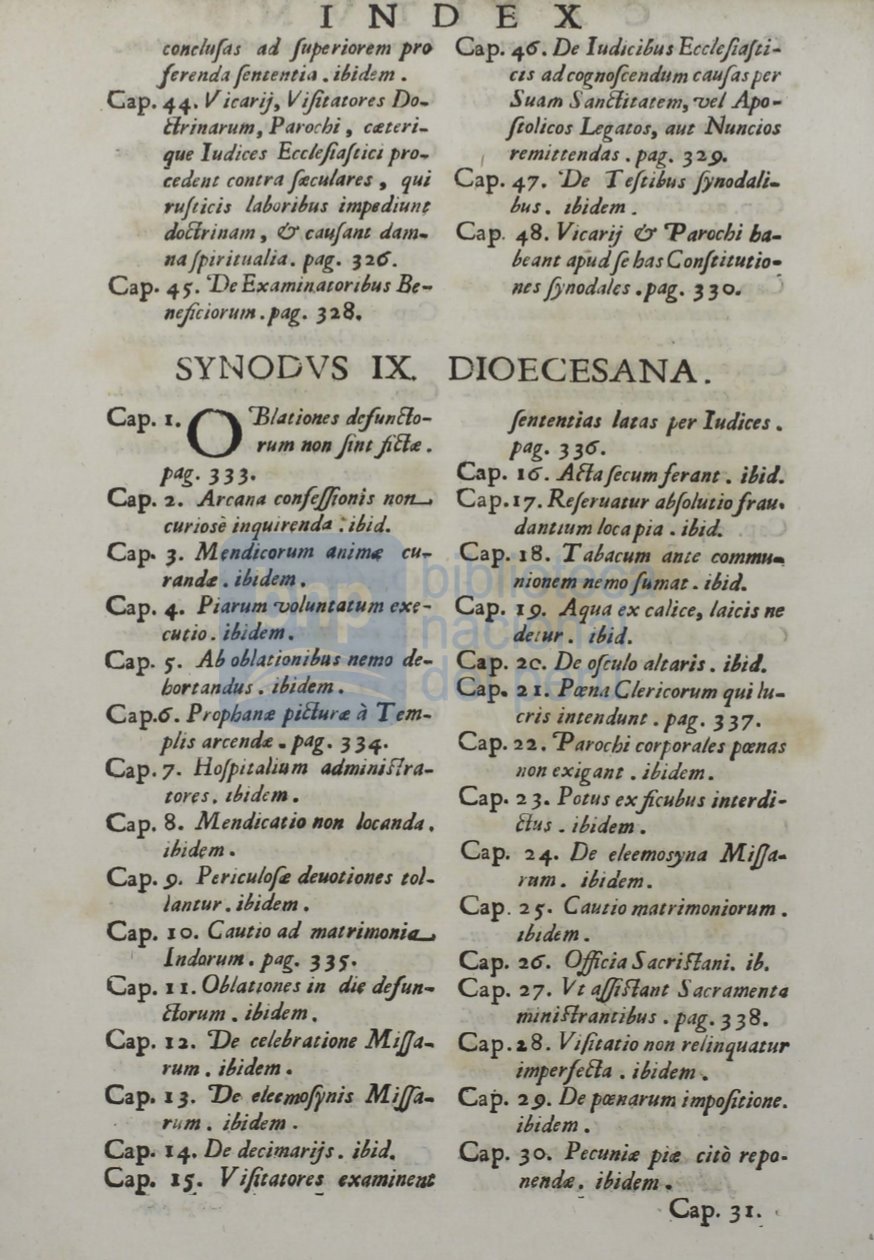 INDEX
conclusas ad superiorem pro
ferenda sententia . ibidem .
Cap. 44. Vicarij, Visitatores Do-
ctrinarum, Parochi , cæteri-
que Iudices Ecclesiastici pro-
cedent contra sæculares , qui
rusticis laboribus impediunt
doctrinam , & causant dam-
na spiritualia. pag. 326.
Cap. 45. De Examinatoribus Be-
neficiorum . pag. 328.
Cap. 46. De Iudicibus Ecclesiasti-
cis ad cognoscendum causas per
Suam Sanctitatem, vel Apo-
stolicos Legatos, aut Nuncios
remittendas . pag. 329.
Cap. 47. De Testibus synodali-
bus. ibidem .
Cap. 48. Vicarij & Parochi ha-
beant apud se has Constitutio-
nes synodales . pag. 330.
SYNODVS IX. DIOECESANA.
Cap. 1. OBlationes defuncto-
rum non sint fictæ .
pag. 333.
Cap. 2. Arcana confessionis non
curiosè inquirenda . ibid.
Cap. 3. Mendicorum animæ cu-
randæ . ibidem .
Cap. 4. Piarum voluntatum exe-
cutio . ibidem .
Cap. 5. Ab oblationibus nemo de-
hortandus . ibidem .
Cap.6. Prophanæ picturæ à Tem-
plis arcendæ . pag. 334.
Cap. 7. Hospitalium administra-
tores. ibidem .
Cap. 8. Mendicatio non locanda .
ibidem .
Cap. 9. Periculosæ deuotiones tol-
lantur . ibidem .
Cap. 10. Cautio ad matrimonia
Indorum . pag. 335.
Cap. 11. Oblationes in die defun-
ctorum . ibidem .
Cap. 12. De celebratione Missa-
rum . ibidem .
Cap. 13. De eleemosynis Missa-
rum . ibidem .
Cap. 14. De decimarijs . ibid.
Cap. 15. Visitatores examinent
sententias latas per Iudices .
pag. 336.
Cap. 16. Acta secum ferant . ibid.
Cap.17. Reseruatur absolutio frau-
dantium loca pia . ibid.
Cap. 18. Tabacum ante commu-
nionem nemo sumat . ibid.
Cap. 19. Aqua ex calice, laicis ne
detur . ibid.
Cap. 20. De osculo altaris . ibid.
Cap. 21. Pœna Clericorum qui lu-
cris intendunt . pag. 337.
Cap. 22. Parochi corporales pœnas
non exigant . ibidem .
Cap. 23. Potus ex ficubus interdi-
ctus . ibidem .
Cap. 24. De eleemosyna Missa-
rum . ibidem .
Cap. 25. Cautio matrimoniorum .
ibidem .
Cap. 26. Officia Sacristani. ib.
Cap. 27. Vt assistant Sacramenta
ministrantibus . pag. 338.
Cap. 28. Visitatio non relinquatur
imperfecta . ibidem .
Cap. 29. De pœnarum impositione.
ibidem .
Cap. 30. Pecuniæ piæ citò repo-
nendæ . ibidem .
Cap. 31.
bnp biblioteca
nacional
del perú